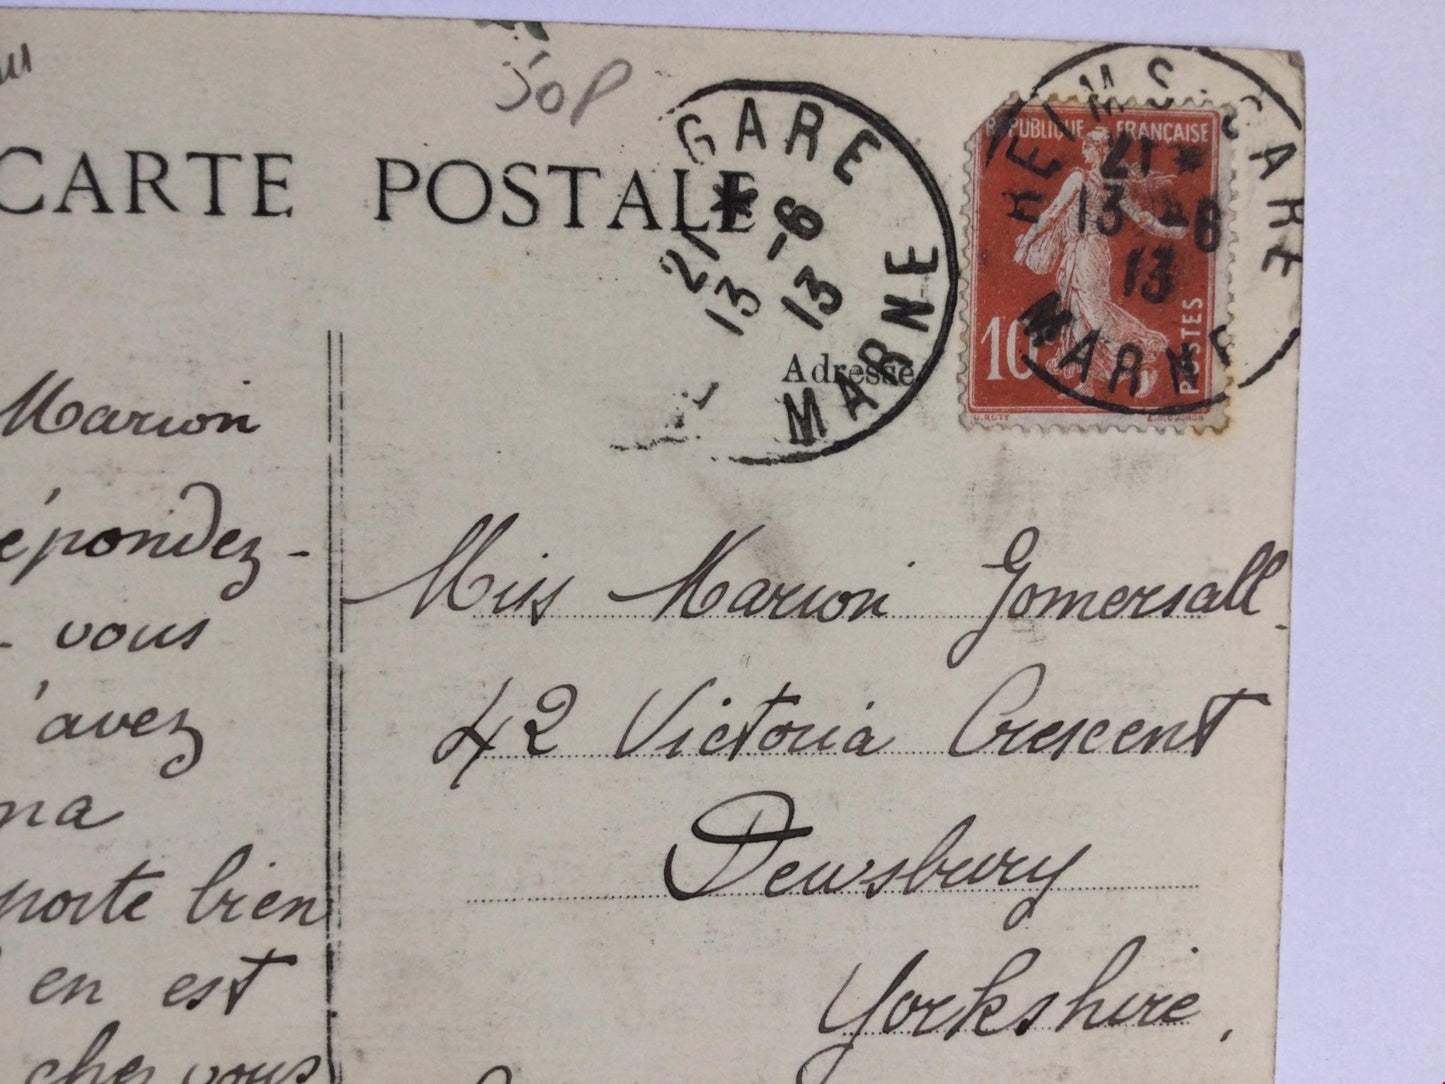 50P
CARTE POSTALE
GARE
21 *
13 - 6
13
MARNE
REIMS GARE
21 *
13 - 6
13
MARNE
REPUBLIQUE FRANÇAISE
10
POSTES
O. ROTY
Adresse
Marion
épondez-
vous
'avez
ma
porte bien
en est
chez vous
Miss Marion Gomersall
42 Victoria Crescent
Dewsbury
Yorkshire,